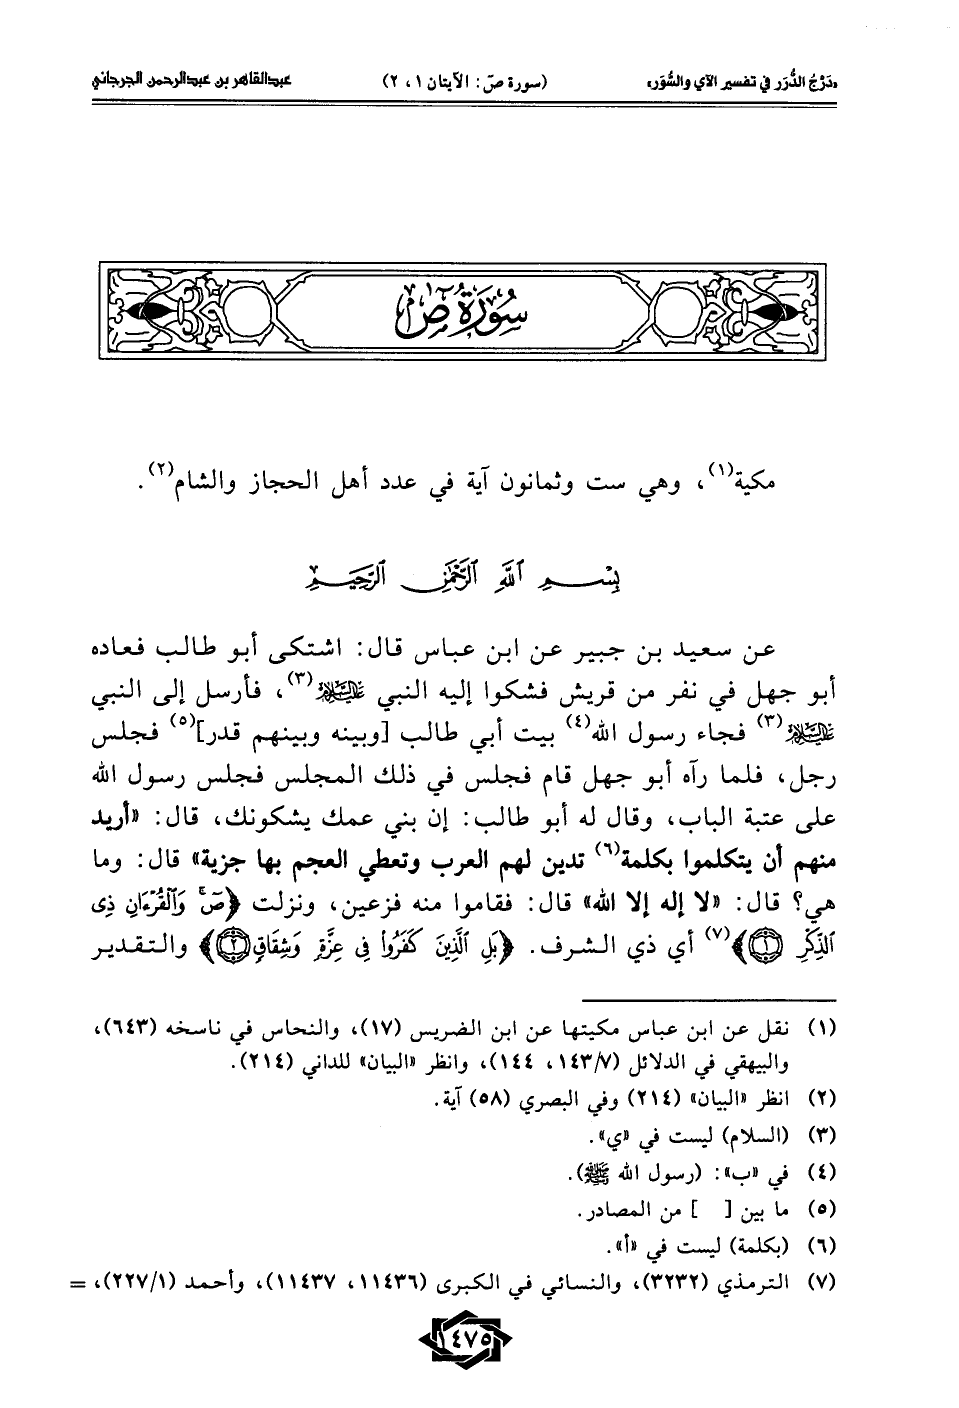 «دَرْجُ الدُّرَر في تفسير الآي والسُّوَر» (سورة صّ: الآيتان ١، ٢) عبدالقاهر بن عبدالرحمن الجرجاني
سُورَةُ صٓ
مكية(١)، وهي ست وثمانون آية في عدد أهل الحجاز والشام(٢).
بِسْمِ ٱللَّهِ ٱلرَّحْمَٰنِ ٱلرَّحِيمِ
عن سعيد بن جبير عن ابن عباس قال: اشتكى أبو طالب فعاده
أبو جهل في نفر من قريش فشكوا إليه النبي عليه السلام(٣)، فأرسل إلى النبي
عليه السلام(٣) فجاء رسول الله(٤) بيت أبي طالب [وبينه وبينهم قدر](٥) فجلس
رجل، فلما رآه أبو جهل قام فجلس في ذلك المجلس فجلس رسول الله
على عتبة الباب، وقال له أبو طالب: إن بني عمك يشكونك، قال: «أريد
منهم أن يتكلموا بكلمة(٦) تدين لهم العرب وتعطي العجم بها جزية» قال: وما
هي؟ قال: «لا إله إلا الله» قال: فقاموا منه فزعين، ونزلت ﴿صٓۚ وَٱلْقُرْءَانِ ذِى
ٱلذِّكْرِ ١﴾(٧) أي ذي الشرف. ﴿بَلِ ٱلَّذِينَ كَفَرُوا۟ فِى عِزَّةٍ وَشِقَاقٍ ٢﴾ والتقدير
(١) نقل عن ابن عباس مكيتها عن ابن الضريس (١٧)، والنحاس في ناسخه (٦٤٣)،
والبيهقي في الدلائل (١٤٣/٧، ١٤٤)، وانظر «البيان» للداني (٢١٤).
(٢) انظر «البيان» (٢١٤) وفي البصري (٥٨) آية.
(٣) (السلام) ليست في «ي».
(٤) في «ب»: (رسول الله ﷺ).
(٥) ما بين [ ] من المصادر.
(٦) (بكلمة) ليست في «أ».
(٧) الترمذي (٣٢٣٢)، والنسائي في الكبرى (١١٤٣٦، ١١٤٣٧)، وأحمد (٢٢٧/١)، =
١٤٧٥